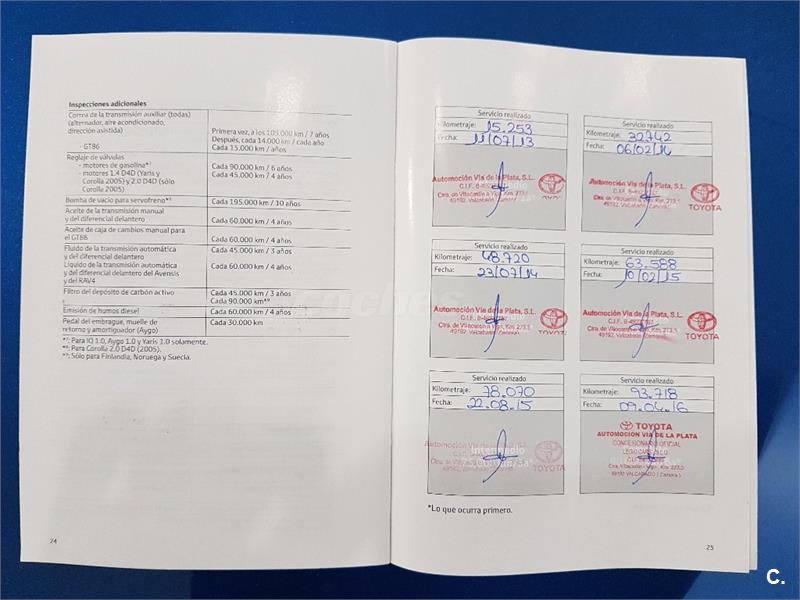 Inspecciones adicionales
Correa de la transmisión auxiliar (todas)
(alternador, aire acondicionado,
dirección asistida)
- GT86
Primera vez, a los 105.000 km / 7 años
Después, cada 14.000 km / cada año
Cada 15.000 km / años
Reglaje de válvulas
- motores de gasolina*⁷
- motores 1.4 D4D (Yaris y
Corolla 2005) y 2.0 D4D (sólo
Corolla 2005)
Cada 90.000 km / 6 años
Cada 45.000 km / 4 años
Bomba de vacío para servofreno*⁸
Cada 195.000 km / 10 años
Aceite de la transmisión manual
y del diferencial delantero
Cada 60.000 km / 4 años
Aceite de caja de cambios manual para
el GT86
Cada 60.000 km / 4 años
Fluido de la transmisión automática
y del diferencial delantero
Cada 45.000 km / 3 años
Líquido de la transmisión automática
y del diferencial delantero del Avensis
y del RAV4
Cada 60.000 km / 4 años
Filtro del depósito de carbón activo
Cada 45.000 km / 3 años
Cada 90.000 km*⁹
Emisión de humos diesel
Cada 60.000 km / 4 años
Pedal del embrague, muelle de
retorno y amortiguador (Aygo)
Cada 30.000 km
*⁷: Para IQ 1.0, Aygo 1.0 y Yaris 1.0 solamente.
*⁸: Para Corolla 2.0 D4D (2005).
*⁹: Sólo para Finlandia, Noruega y Suecia.
24
Servicio realizado
Kilometraje: 15.253
Fecha: 11/07/13
Automoción Vía de la Plata, S.L.
TOYOTA
Servicio realizado
Kilometraje: 32742
Fecha: 06/02/14
Automoción Vía de la Plata, S.L.
TOYOTA
Servicio realizado
Kilometraje: 48.720
Fecha: 23/07/14
Automoción Vía de la Plata, S.L.
TOYOTA
Servicio realizado
Kilometraje: 63.588
Fecha: 10/02/15
Automoción Vía de la Plata, S.L.
TOYOTA
Servicio realizado
Kilometraje: 78.070
Fecha: 22.08.15
Automoción Vía de la Plata, S.L.
Intermedio
TOYOTA
Servicio realizado
Kilometraje: 93.718
Fecha: 09.04.16
TOYOTA
AUTOMOCION VIA DE LA PLATA
CONCESIONARIO OFICIAL
*Lo que ocurra primero.
25
coches
C.